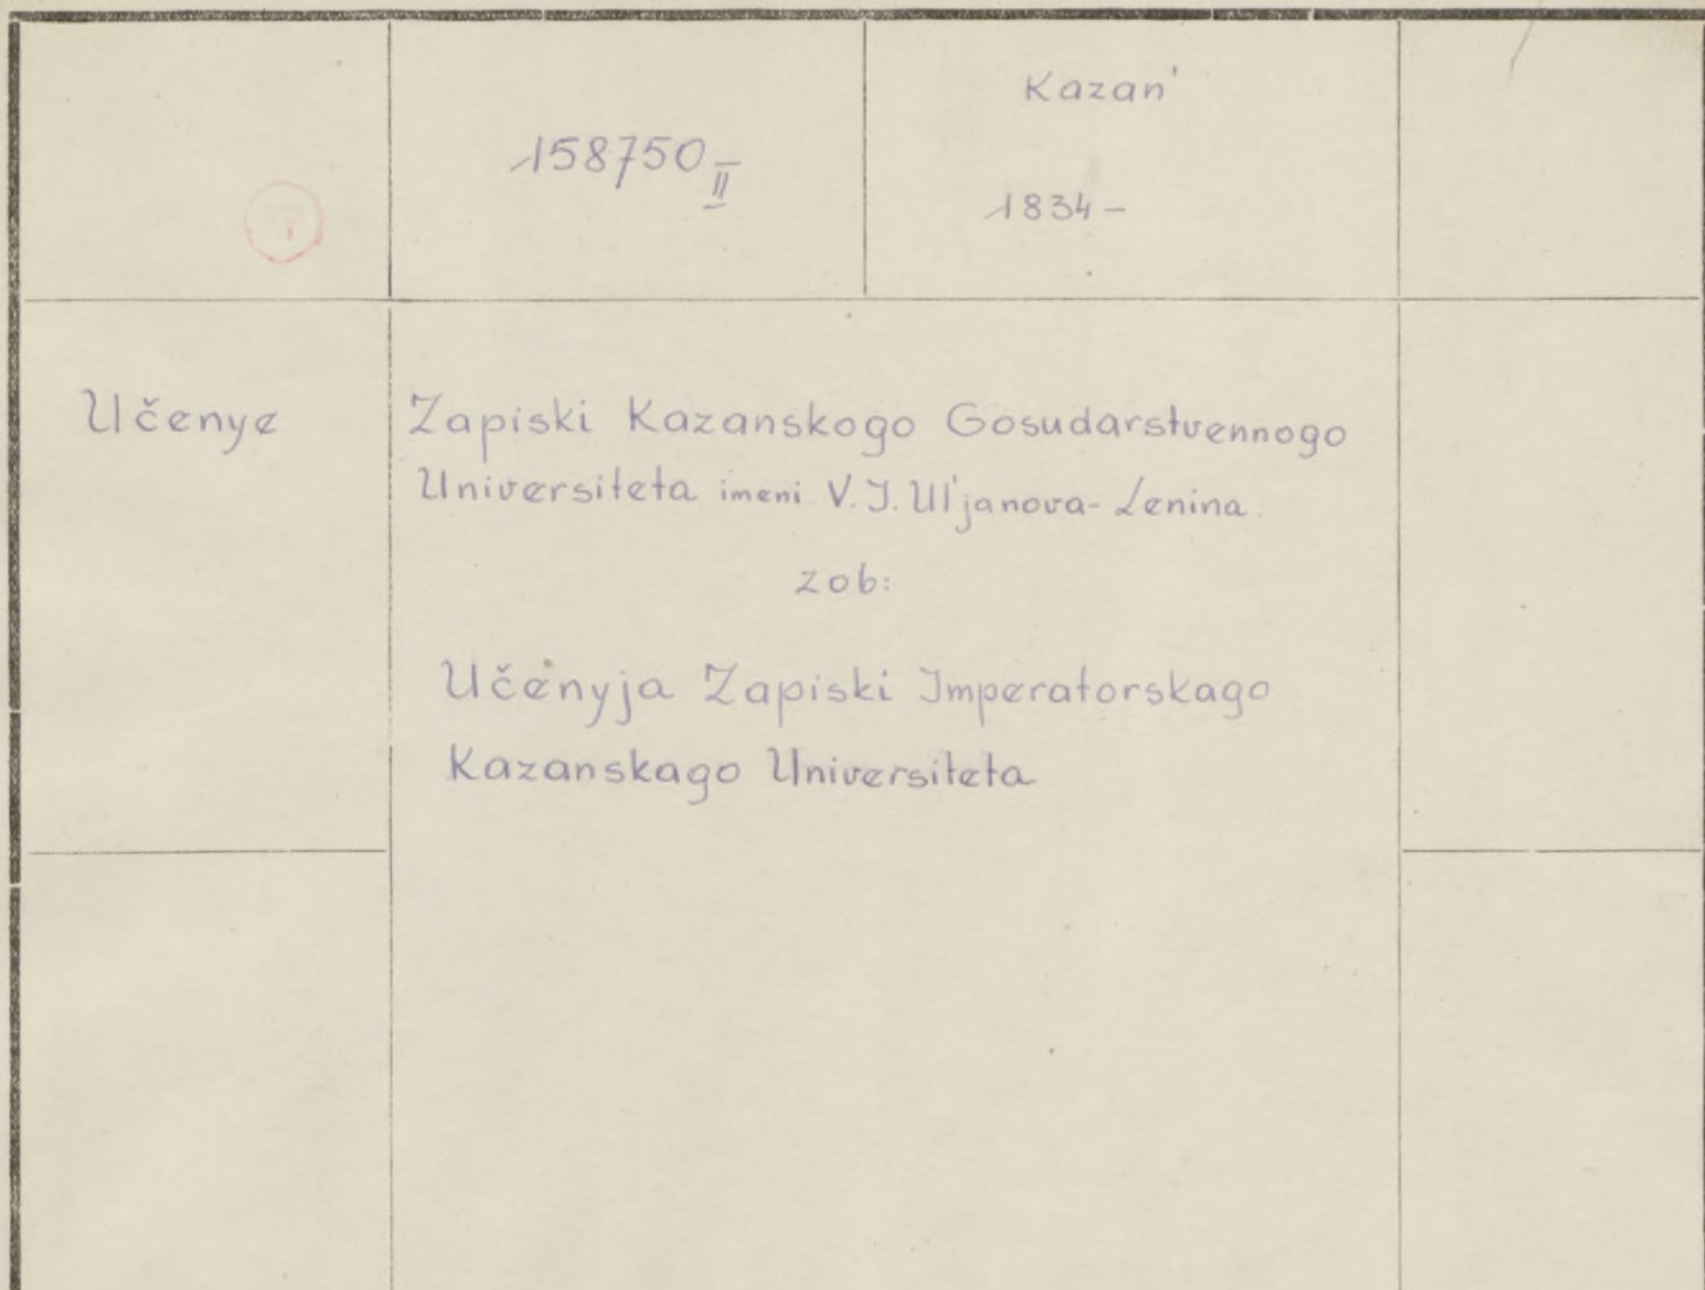 158750 II
Kazan'
1834-
Učenye Zapiski Kazanskogo Gosudarstvennogo
Universiteta imeni V. J. Ul'janova-Lenina.
zob:
Učenyja Zapiski Jmperatorskago
Kazanskago Universiteta